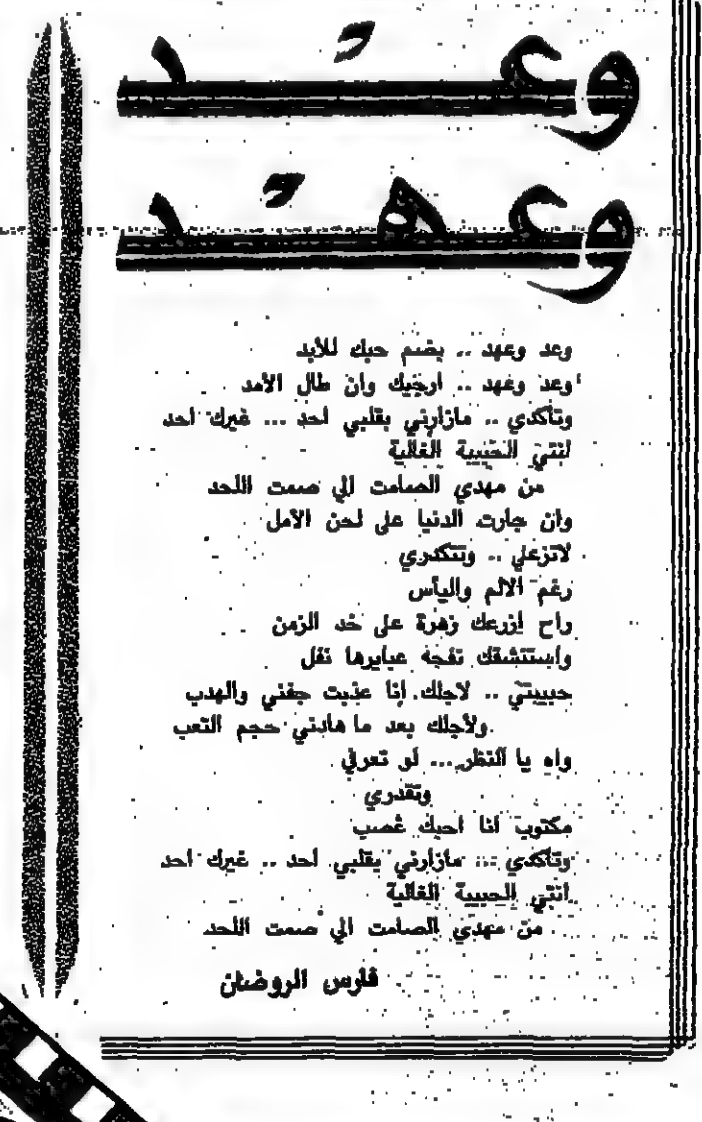 وعد
وعهد
وعد وعهد .. يضم حبك للأبد
وعد وعهد .. ارجيك وان طال الأمد
وتأكدي .. مازارني بقلبي احد ... غيرك احد
انتي الحبيبة الغالية
من مهدي الصامت الي صمت اللحد
وان جارت الدنيا على لحن الأمل
لاتزعلي .. وتتكدري
رغم الالم واليأس
راح ازرعك زهرة على خد الزمن
واستنشقك نفحة عبايرها نفل
حبيبتي .. لاجلك انا عذبت جفني والهدب
ولأجلك بعد ما هادني حجم التعب
واه يا النظر ... لو تعرفي
وتقدري
مكتوب انا احبك غصب
وتأكدي ... مازارني بقلبي احد .. غيرك احد
انتي الحبيبة الغالية
من مهدي الصامت الي صمت اللحد
فارس الروضان